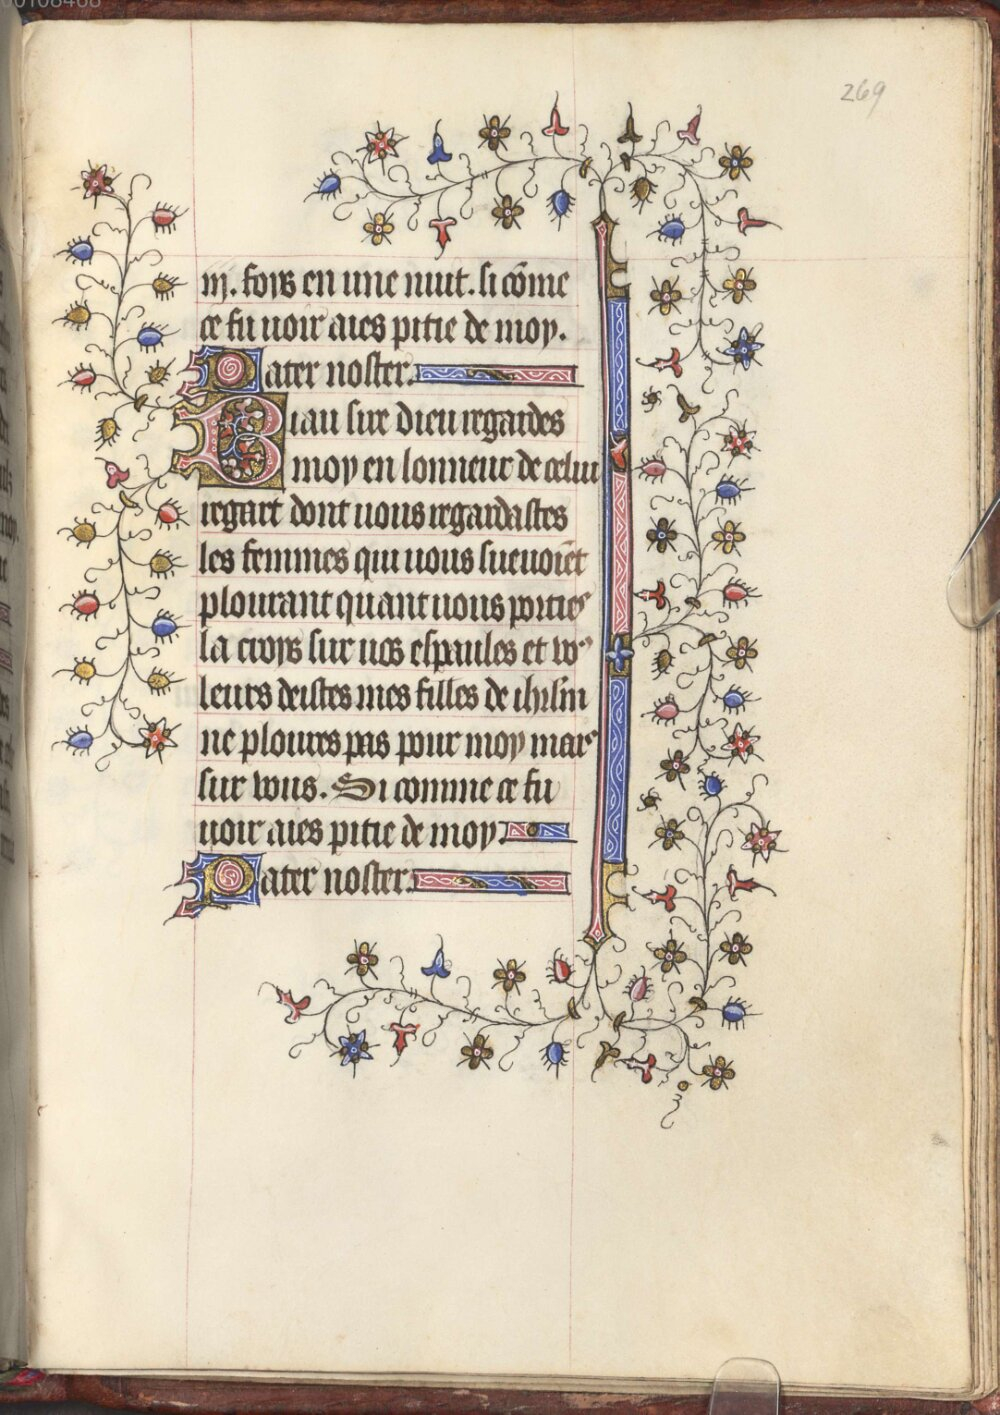 269
iij. foys en une nuit. si cõme
ce fu uoir aies pitie de moy.
Pater noster.
Biau sire dieu regardes
moy en lonneur de celui
regart dont uous regardastes
les femmes qui uous sieuoiẽt
plourant quant uous porties
la croys sur uos espaules et vo⁹
leurs deistes mes filles de ihrlm̃
ne ploures pas pour moy mais
sur vous. Si comme ce fu
uoir aies pitie de moy
Pater noster.